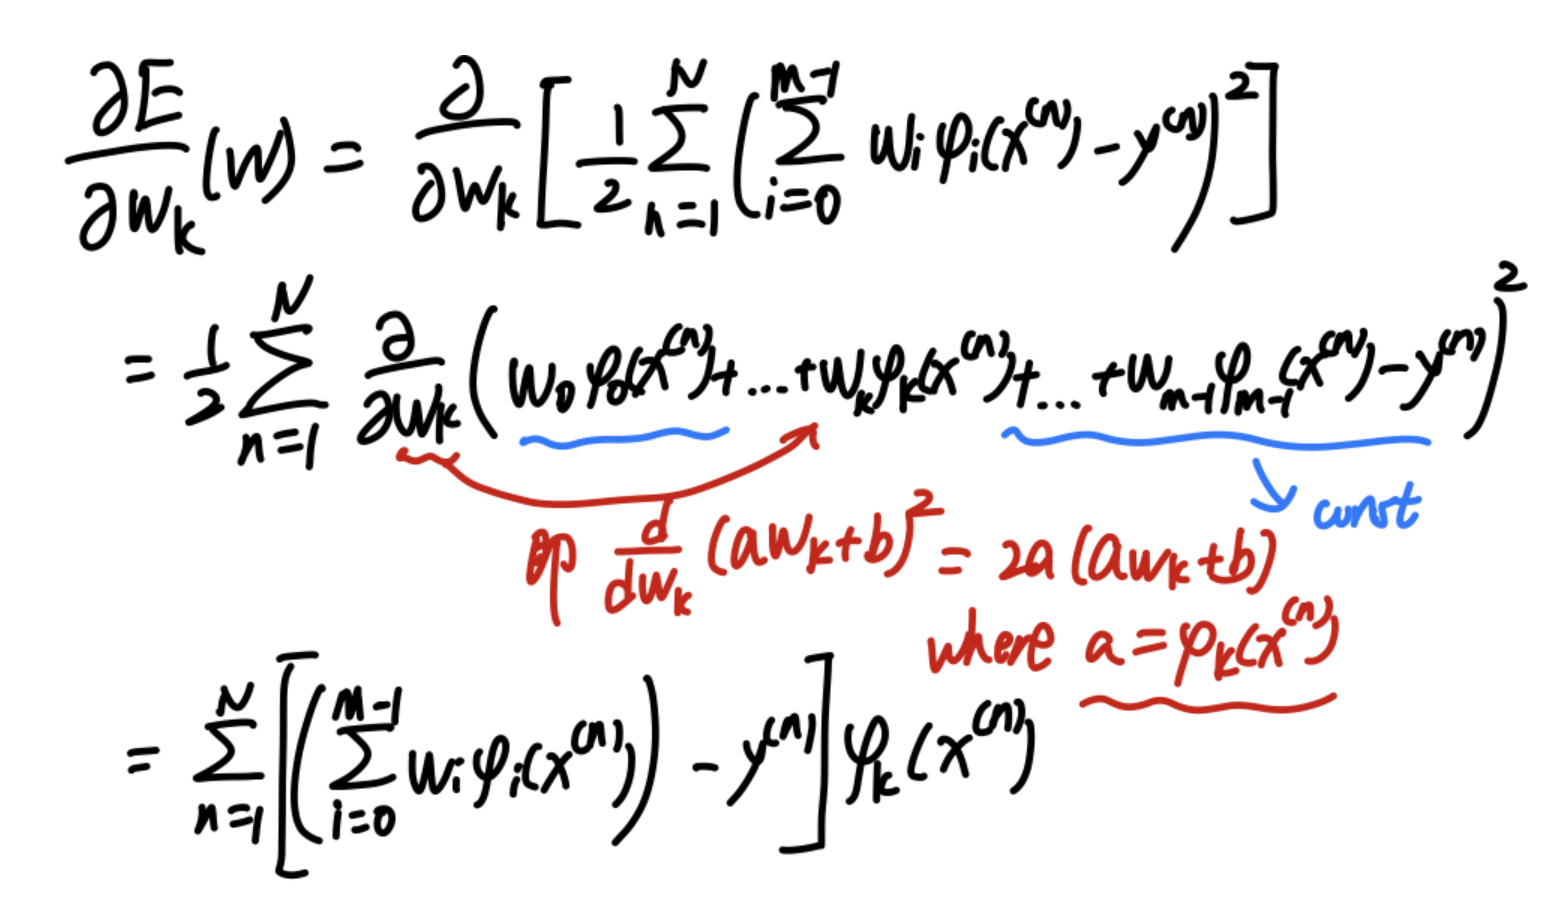 ∂E/∂w_k (w) = ∂/∂w_k [ 1/2 ∑_{n=1}^{N} ( ∑_{i=0}^{m-1} w_i φ_i(x^{(n)}) - y^{(n)} )^2 ]
= 1/2 ∑_{n=1}^{N} ∂/∂w_k ( w_0 φ_0(x^{(n)}) + ... + w_k φ_k(x^{(n)}) + ... + w_{m-1} φ_{m-1}(x^{(n)}) - y^{(n)} )^2
const
即 d/dw_k (aw_k+b)^2 = 2a(aw_k+b)
where a = φ_k(x^{(n)})
= ∑_{n=1}^{N} [ ( ∑_{i=0}^{m-1} w_i φ_i(x^{(n)}) ) - y^{(n)} ] φ_k(x^{(n)})